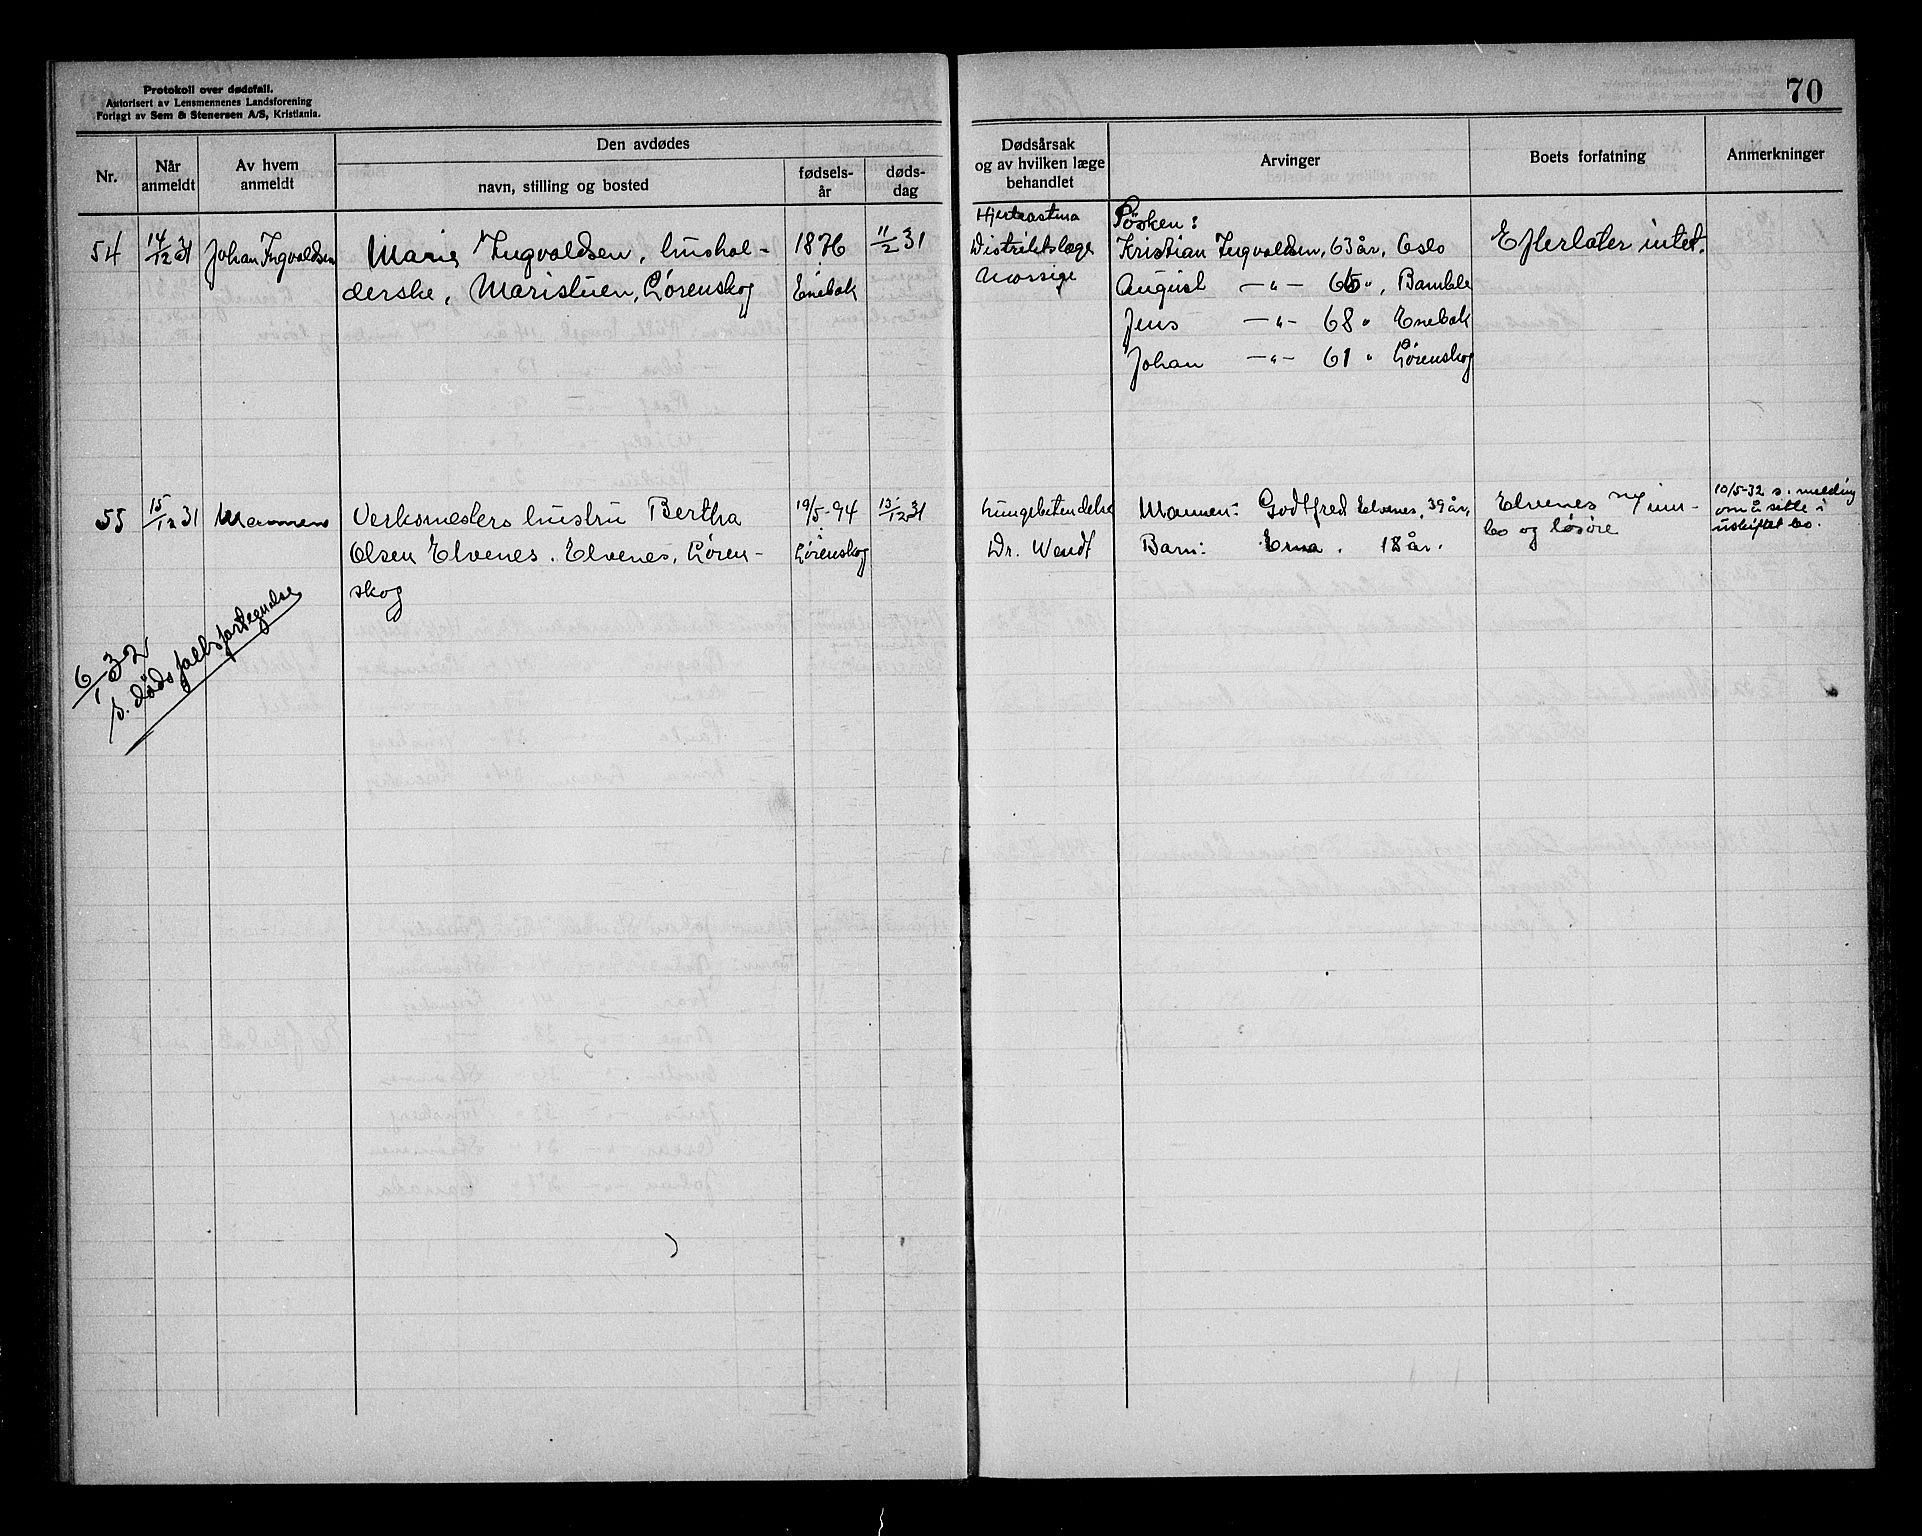 Protokoll over dødsfall.
Autorisert av Lensmennenes Landsforening
Forlagt av Sem & Stenersen A/S, Kristiania.
Nr.
Når anmeldt
Av hvem anmeldt
Den avdødes
navn, stilling og bosted
fødsels-år
døds-dag
54 14/12 31 Johan Ingvaldsen Marie Ingvaldsen, hushol- 1876 11/2 31
derske, Maristuen, Lørenskog Enebak
55 15/12 31 Mannen Verksmesters hustru Bertha 19/5-94 13/12 31
Olsen Elvenes. Elvenes, Løren- Lørenskog
skog
6/1 32
s. dødsfallsfortegnelse
70
Dødsårsak
og av hvilken læge
behandlet
Arvinger
Boets forfatning
Anmerkninger
Hjerteastma Søsken:
Distriktslæge Kristian Ingvaldsen, 63 år, Oslo Efterlater intet.
August —"— 65 ", Bamble
Jens —"— 68 " Enebak
Johan —"— 61 " Lørenskog
Lungebetendelse Mannen: Godtfred Elvenes, 39 år, Elvenes
Dr. Wendt Barn: Erna. 18 år. bo og løsøre
10/5-32 s. melding
om å sitte i
uskiftet bo.